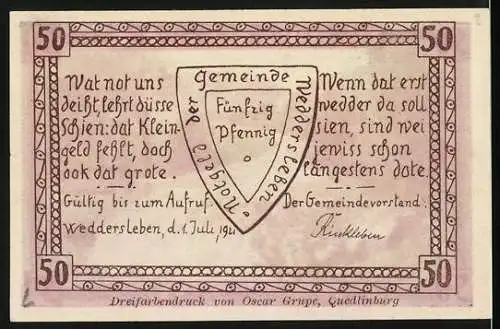 50
50
Wat not uns
deiht, lehrt düsse
Schien: dat Klein-
geld fehlt, doch
ook dat grote.
Gültig bis zum Aufruf.
Weddersleben, d. 1. Juli, 1921
Notgeld der Gemeinde Weddersleben
Fünfzig
Pfennig
Wenn dat erst
wedder da soll
sien, sind wei
jewiss schon
längestens dote.
Der Gemeindevorstand:
50
50
Dreifarbendruck von Oscar Grupe, Quedlinburg